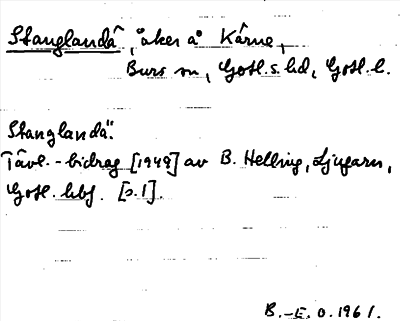 Stanglandå, åker å Kärne,
Burs sn, Gotl. s. hd, Gotl. l.
Stanglandå".
Tävl.-bidrag [1949] av B. Helling, Ljugarn,
Gotl. hbf. [s. 1].
B.-E. O. 1961.